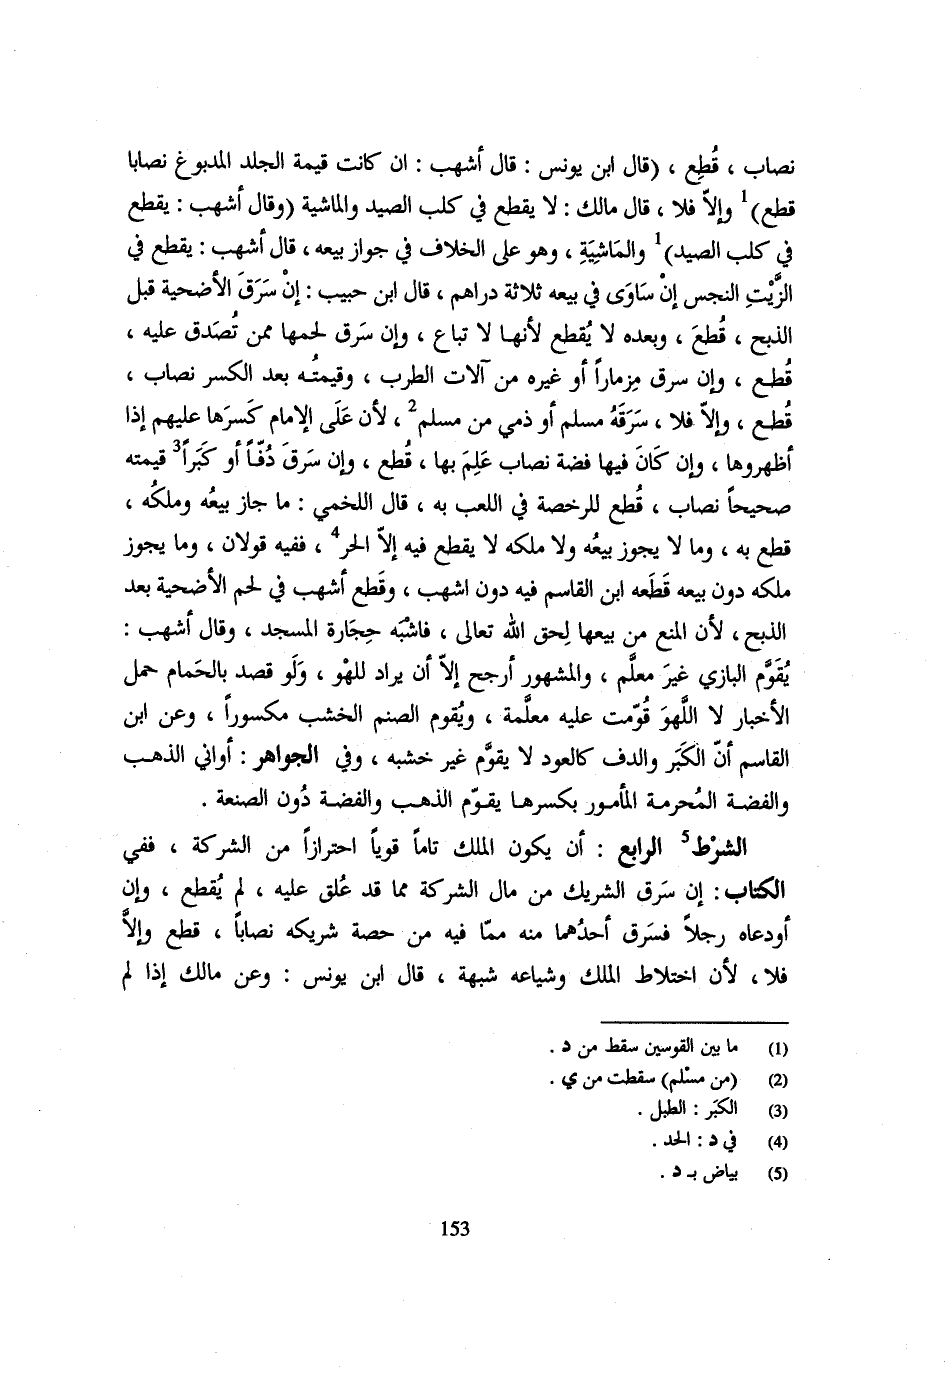 نصاب ، قُطِع ، (قال ابن يونس : قال أشهب : ان كانت قيمة الجلد المدبوغ نصابا
قطع)1 وإلاّ فلا ، قال مالك : لا يقطع في كلب الصيد والماشية (وقال أشهب : يقطع
في كلب الصيد)1 والمَاشِيَةِ ، وهو على الخلاف في جواز بيعه ، قال أشهب : يقطع في
الزَّيْتِ النجس إنْ سَاوَى في بيعه ثلاثة دراهم ، قال ابن حبيب : إنْ سَرَقَ الأضحية قبل
الذبح ، قُطعَ ، وبعده لا يُقطع لأنها لا تباع ، وإن سَرق لحمها ممن تُصَدق عليه ،
قُطع ، وإن سرق مِزماراً أو غيره من آلات الطرب ، وقيمتُه بعد الكسر نصاب ،
قُطع ، وإلاّ فلا ، سَرَقَهُ مسلم أو ذمي من مسلم2 ، لأن عَلَى الإمام كَسرَها عليهم إذا
أظهروها ، وإن كَانَ فيها فضة نصاب عَلِمَ بها ، قُطع ، وإن سَرقَ دُفّاً أو كَبَراً3 قيمته
صحيحاً نصاب ، قُطع للرخصة في اللعب به ، قال اللخمي : ما جاز بيعُه وملكُه ،
قطع به ، وما لا يجوز بيعُه ولا ملكه لا يقطع فيه إلاّ الحر4 ، ففيه قولان ، وما يجوز
ملكه دون بيعه قَطَعه ابن القاسم فيه دون اشهب ، وقَطع أشهب في لحم الأضحية بعد
الذبح ، لأن المنع من بيعها لِحق الله تعالى ، فاشْبَه حِجَارة المسجد ، وقال أشهب :
يُقَوَّم البازي غيرَ معلَّم ، والمشهور أرجح إلاّ أن يراد للهْو ، وَلَو قصد بالحَمام حمل
الأخبار لا اللَّهوَ قُوّمت عليه معلَّمة ، ويُقوم الصنم الخشب مكسوراً ، وعن ابن
القاسم أنّ الكَبَر والدف كالعود لا يقوَّم غير خشبه ، وفي الجواهر : أواني الذهب
والفضة المُحرمة المأمور بكسرها يقوّم الذهب والفضة دُون الصنعة .
الشرْط5 الرابع : أن يكون الملك تاماً قوياً احترازاً من الشركة ، ففي
الكتاب : إن سَرق الشريك من مال الشركة مما قد غُلق عليه ، لم يُقطع ، وإن
أودعاه رجلاً فسَرق أحدُهما منه ممّا فيه من حصة شريكه نصاباً ، قطع وإلاَّ
فلا ، لأن اختلاط الملك وشياعه شبهة ، قال ابن يونس : وعن مالك إذا لم
(1) ما بين القوسين سقط من د .
(2) (من مسْلم) سقطت من ي .
(3) الكَبَر : الطبل .
(4) في د : الحد .
(5) بياض بـ د .
153